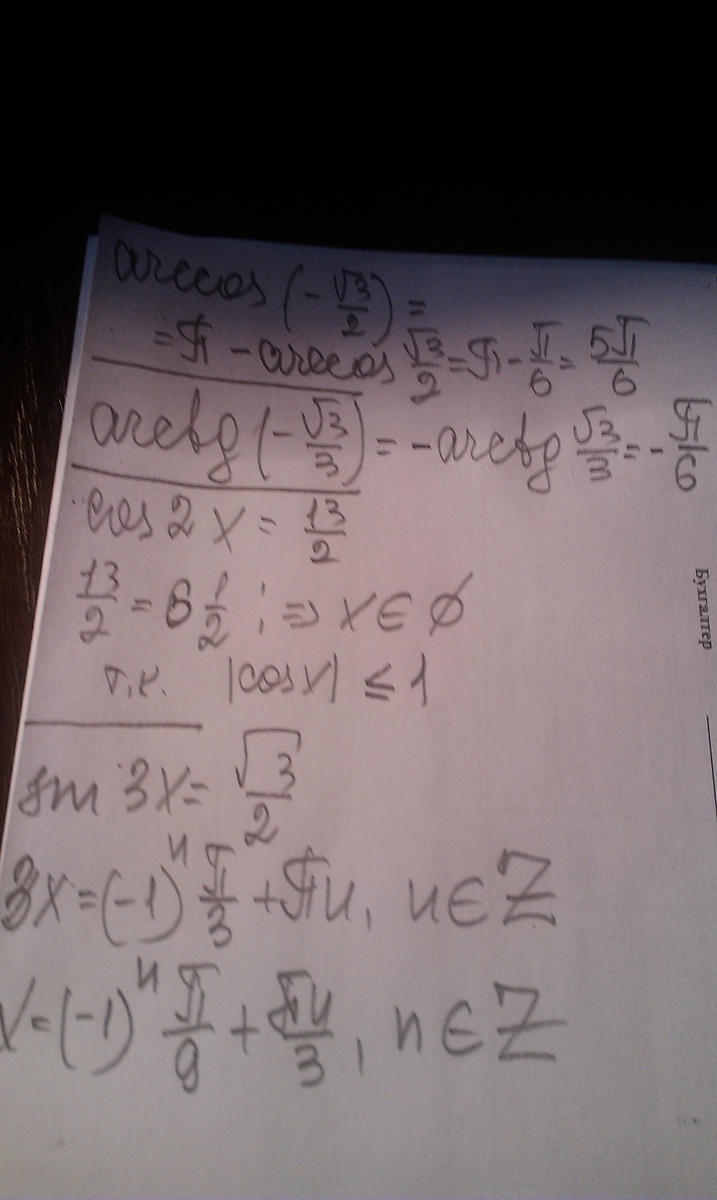 arccos (-√3/2) =
= π - arccos √3/2 = π - π/6 = 5π/6
arctg (-√3/3) = -arctg √3/3 = -π/6
cos 2x = 13/2
13/2 = 6 1/2 ; ⇒ x ∈ ∅
т.к. |cosx| ≤ 1
sin 3x = √3/2
3x = (-1)ⁿ π/3 + πn, n ∈ Z
x = (-1)ⁿ π/9 + πn/3, n ∈ Z
Бухгалтер